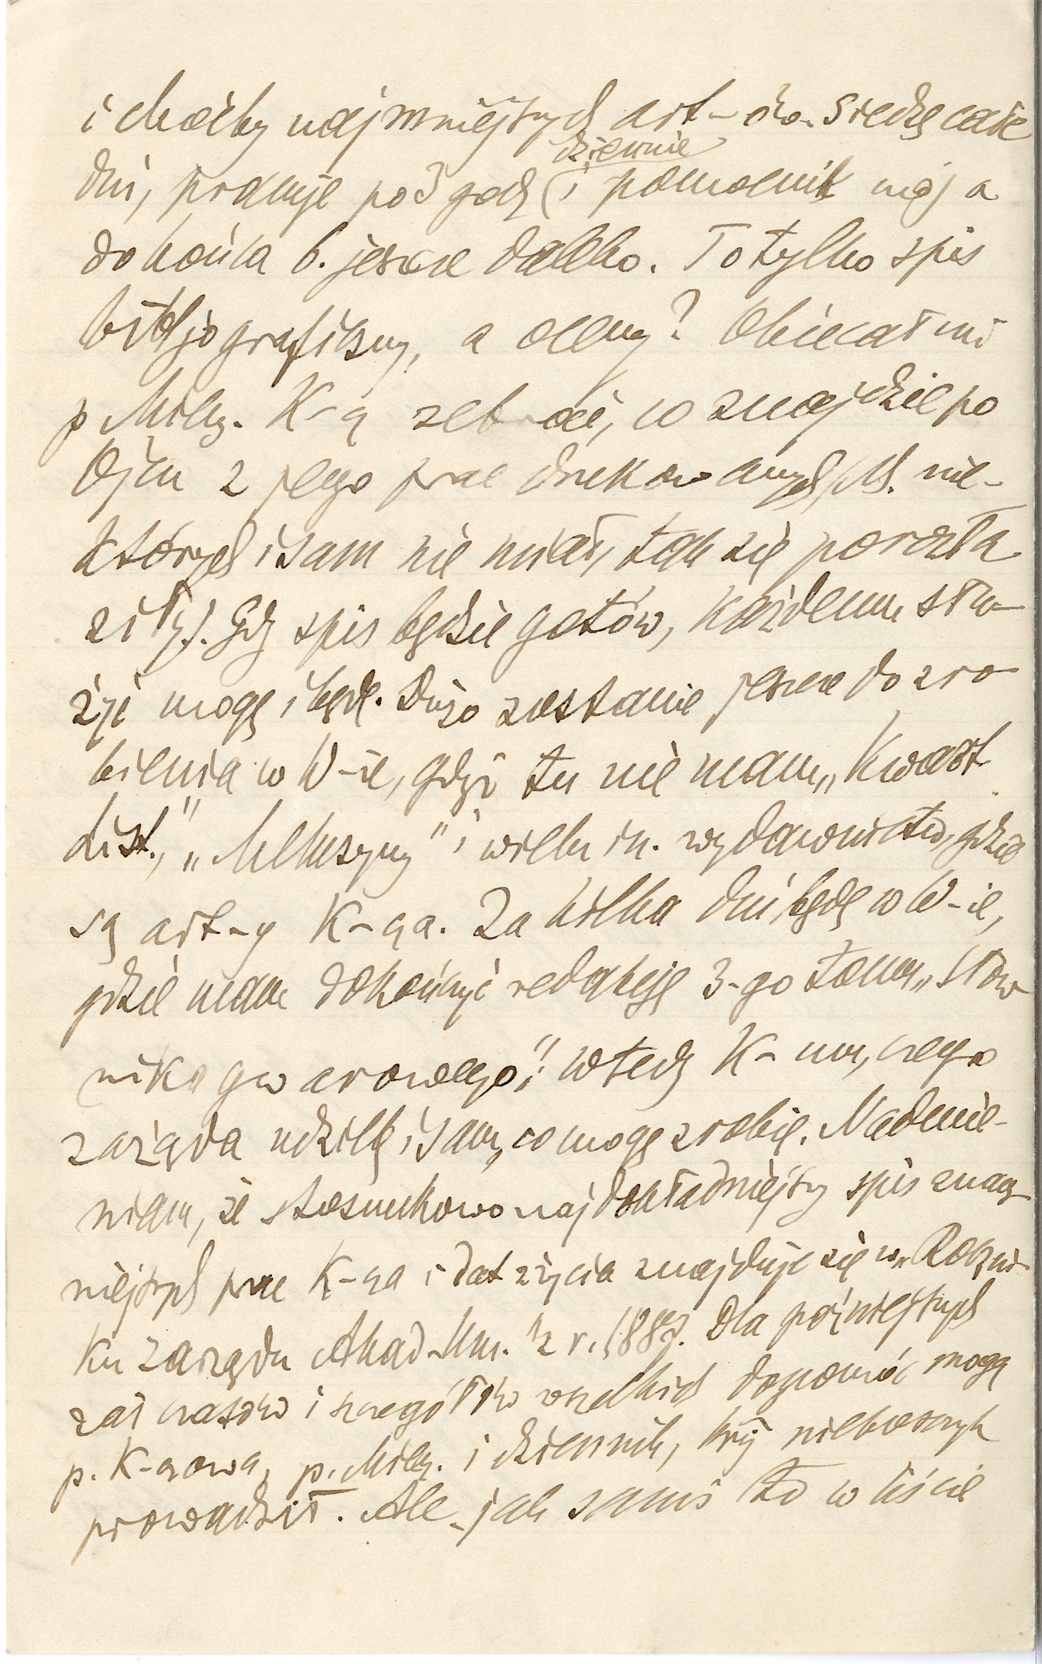 i choćby najmniejszych art-ów. Siedzę całe
dni, pracuję po 3 godz dziennie (i pomocnik mój) a
do końca b. jeszcze daleko. To tylko spis
bibljograficzny, a oceny? Obiecał mi
p. Miecz. K-cz zebrać, co znajdzie po
Ojcu z jego prac drukowanych (M. nie-
których i sam nie miał, tak się porozła-
ziły). Gdy spis będzie gotów, każdemu słu-
żyć mogę i będę. Dużo zostanie jeszcze do zro
bienia w W-ie, gdyż tu nie mam „Kwart
hist.”, „Melusyny” i wielu in. wydawnictw, gdzie
są art-y K-cza. Za kilka dni będę w W-ie,
gdzie mam dokończyć redakcję 3-go tomu „Słow
nika gwarowego”; wtedy K- mu, czego
zażąda udzielę i sam, co mogę zrobię. Nadmie-
niam, że stosunkowo najdokładniejszy spis znacz-
niejszych prac K-cza i dat życia znajduje się w „Roczni-
ku Zarządu Akad. Um.” z r. 1887. Dla późniejszych
zaś czasów i szczegółów wszelkich dopomóc mogą
p. K-czowa, p. Miecz. i dziennik, który nieboszczyk
prowadził. Ale jak zmieścić to w liście